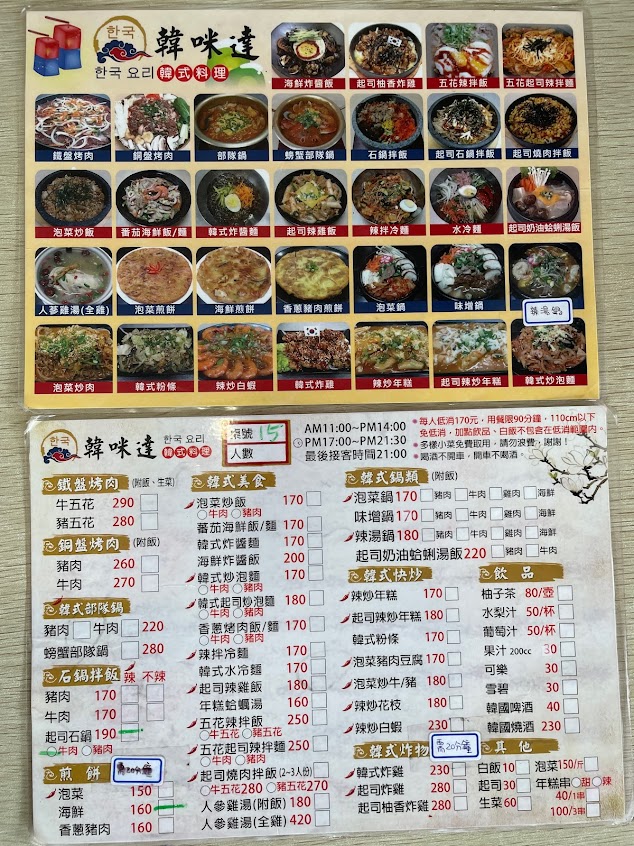 한국
韓咪達
한국 요리 韓式料理
海鮮炸醬飯 起司柚香炸雞 五花辣拌飯 五花起司辣拌麵
鐵盤烤肉 銅盤烤肉 部隊鍋 螃蟹部隊鍋 石鍋拌飯 起司石鍋拌飯 起司燒肉拌飯
泡菜炒飯 番茄海鮮飯/麵 韓式炸醬麵 起司辣雞飯 辣拌冷麵 水冷麵 起司奶油蛤蜊湯飯
人蔘雞湯(全雞) 泡菜煎餅 海鮮煎餅 香蔥豬肉煎餅 泡菜鍋 味增鍋 辣湯鍋
泡菜炒肉 韓式粉條 辣炒白蝦 韓式炸雞 辣炒年糕 起司辣炒年糕 韓式炒泡麵
한국
韓咪達
한국 요리
韓式料理
桌號 15
人數
AM11:00~PM14:00
PM17:00~PM21:30
最後接客時間21:00
*每人低消170元，用餐限90分鐘，110cm以下
免低消，加點飲品、白飯不包含在低消範圍內。
*多樣小菜免費取用，請勿浪費，謝謝！
*喝酒不開車，開車不喝酒。
鐵盤烤肉 (附飯、生菜)
牛五花 290
豬五花 280
銅盤烤肉 (附飯)
豬肉 260
牛肉 270
韓式部隊鍋
豬肉 牛肉 220
螃蟹部隊鍋 280
石鍋拌飯 辣 不辣
豬肉 170
牛肉 170
起司石鍋 190
牛肉 豬肉
煎餅 需20分鐘
泡菜 150
海鮮 160
香蔥豬肉 160
韓式美食
泡菜炒飯 170
牛肉 豬肉
蕃茄海鮮飯/麵 170
韓式炸醬麵 170
海鮮炸醬飯 200
韓式炒泡麵 170
牛肉 豬肉
韓式起司炒泡麵 180
牛肉 豬肉
香蔥烤肉飯/麵 170
牛肉 豬肉
辣拌冷麵 170
韓式水冷麵 170
起司辣雞飯 180
年糕蛤蠣湯 160
五花辣拌飯 250
牛五花 豬五花
五花起司辣拌麵 250
牛肉 豬肉
起司燒肉拌飯 (2~3人份)
牛五花280 豬五花270
人參雞湯(附飯) 180
人參雞湯(全雞) 420
韓式鍋類 (附飯)
泡菜鍋 170 豬肉 牛肉 雞肉 海鮮
味增鍋 170 豬肉 牛肉 雞肉 海鮮
辣湯鍋 180 豬肉 牛肉 雞肉 海鮮
起司奶油蛤蜊湯飯220 豬肉 牛肉
韓式快炒
辣炒年糕 170
起司辣炒年糕 180
韓式粉條 170
泡菜豬肉豆腐 170
泡菜炒牛/豬 180
辣炒花枝 180
辣炒白蝦 230
韓式炸物 需20分鐘
韓式炸雞 230
起司炸雞 280
起司柚香炸雞 280
飲品
柚子茶 80/壺
水梨汁 50/杯
葡萄汁 50/杯
果汁 200cc 30
可樂 30
雪碧 30
韓國啤酒 40
韓國燒酒 230
其他
白飯 10 泡菜 150/斤
起司 30 年糕串 甜 辣
生菜 60 40/1串
100/3串